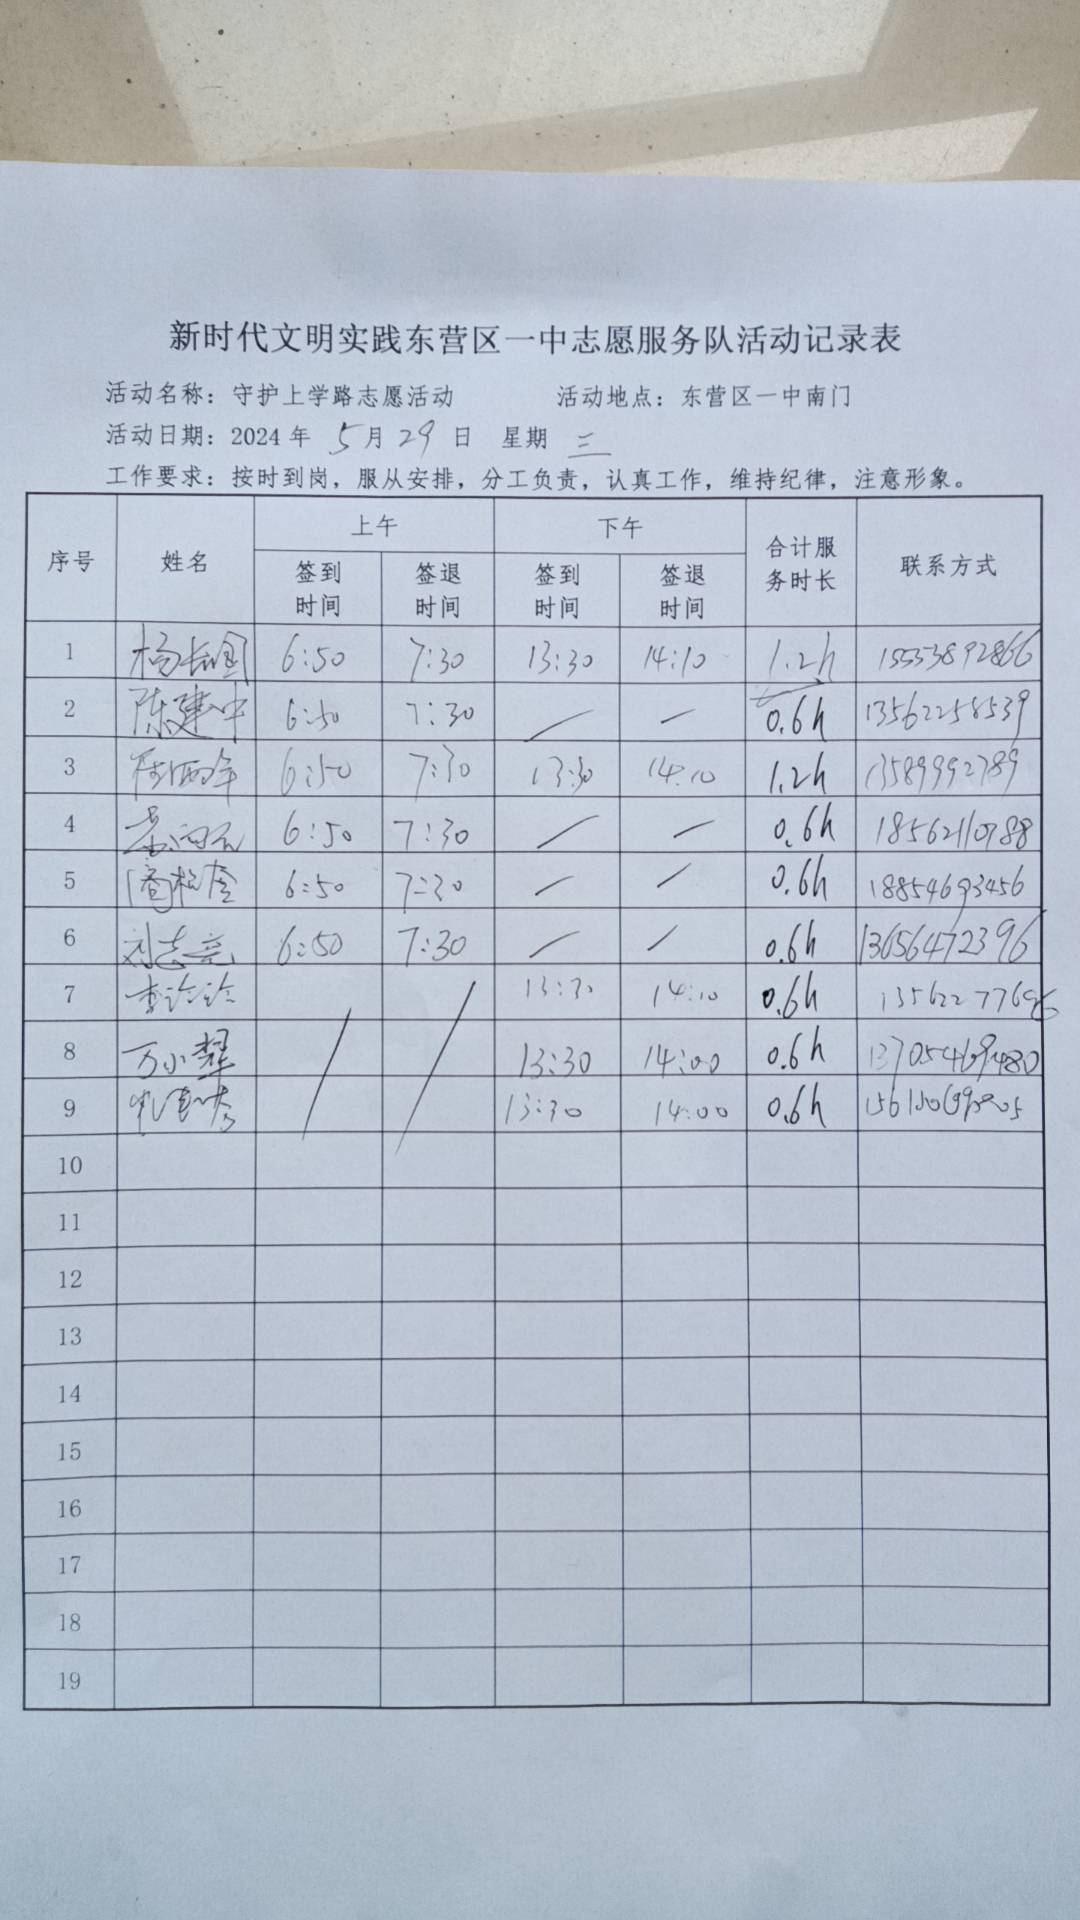 新时代文明实践东营区一中志愿服务队活动记录表
活动名称：守护上学路志愿活动 活动地点：东营区一中南门
活动日期：2024年 5月29日 星期 三
工作要求：按时到岗，服从安排，分工负责，认真工作，维持纪律，注意形象。
序号 姓名 上午 下午 合计服务时长 联系方式
签到时间 签退时间 签到时间 签退时间
1 6:50 7:30 13:30 14:10 1.2h 15553892866
2 陈建中 6:50 7:30 — — 0.6h 13562258539
3 6:50 7:30 13:30 14:10 1.2h 13589992789
4 6:50 7:30 — — 0.6h 18562110988
5 6:50 7:30 — — 0.6h 18854693456
6 刘志亮 6:50 7:30 — — 0.6h 13656472396
7 李玲玲 / / 13:30 14:10 0.6h
8 万小翠 13:30 14:00 0.6h 13705469480
9 13:30 14:00 0.6h
10
11
12
13
14
15
16
17
18
19